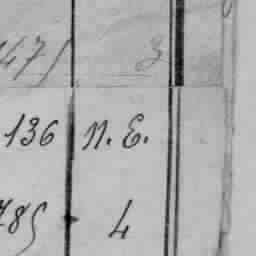 1475 3
136 N. E.
785 4